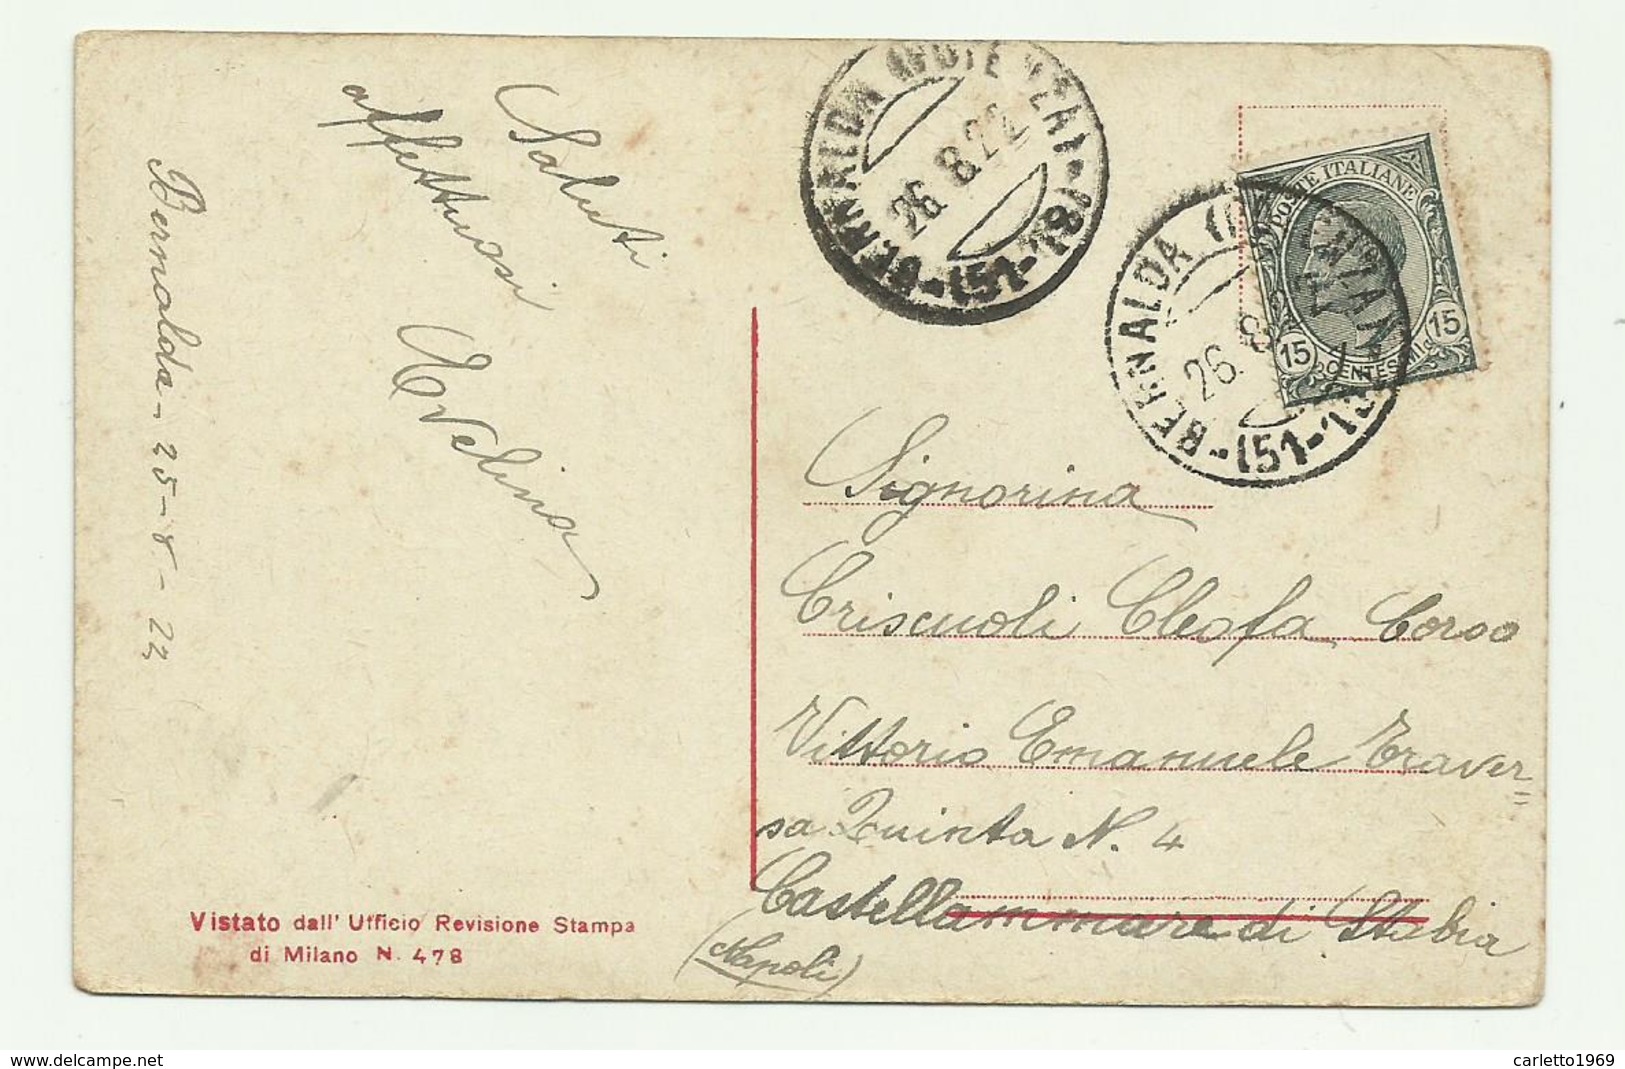 Saluti
affettuosi
Evelina
Bernalda - 25 - 8 - 22
Vistato dall' Ufficio Revisione Stampa
di Milano N. 478
BERNALDA (POTENZA)
26.8.22
(51-181)
BERNALDA (POTENZA)
26.8.22
(51-181)
POSTE ITALIANE
15 15
CENTESIMI
Signorina
Criscuoli Cleofa Corso
Vittorio Emanuele Traver=
sa Quinta N. 4
Castellammare di Stabia
(Napoli)
carletto1969
www.delcampe.net